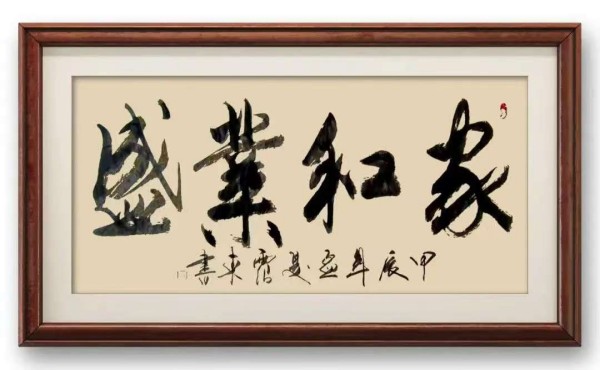 家和業盛
甲辰年孟夏東書